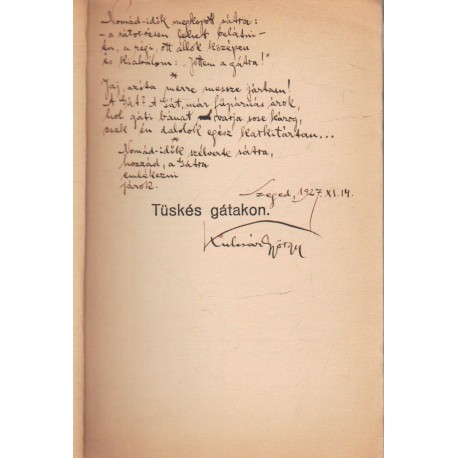 Nomád-idők megkopott sátra:
- a sátor-résen lehet belátni -
én, a régi, ott állok középen
és kiabálom: "Jöttem a gátra!"
*
Jaj, azóta merre messze jártam!
A Gát? A Gát, már fűpárnás árok,
hol gáti bánat varja sose károg,
csak én dalolok egész klarkitártan...
*
Nomád-idők szélverte sátra,
hozzád, a Gátra
emlékezni
járok.
Szeged, 1927. XI. 14.
Tüskés gátakon.
Kulcsár György